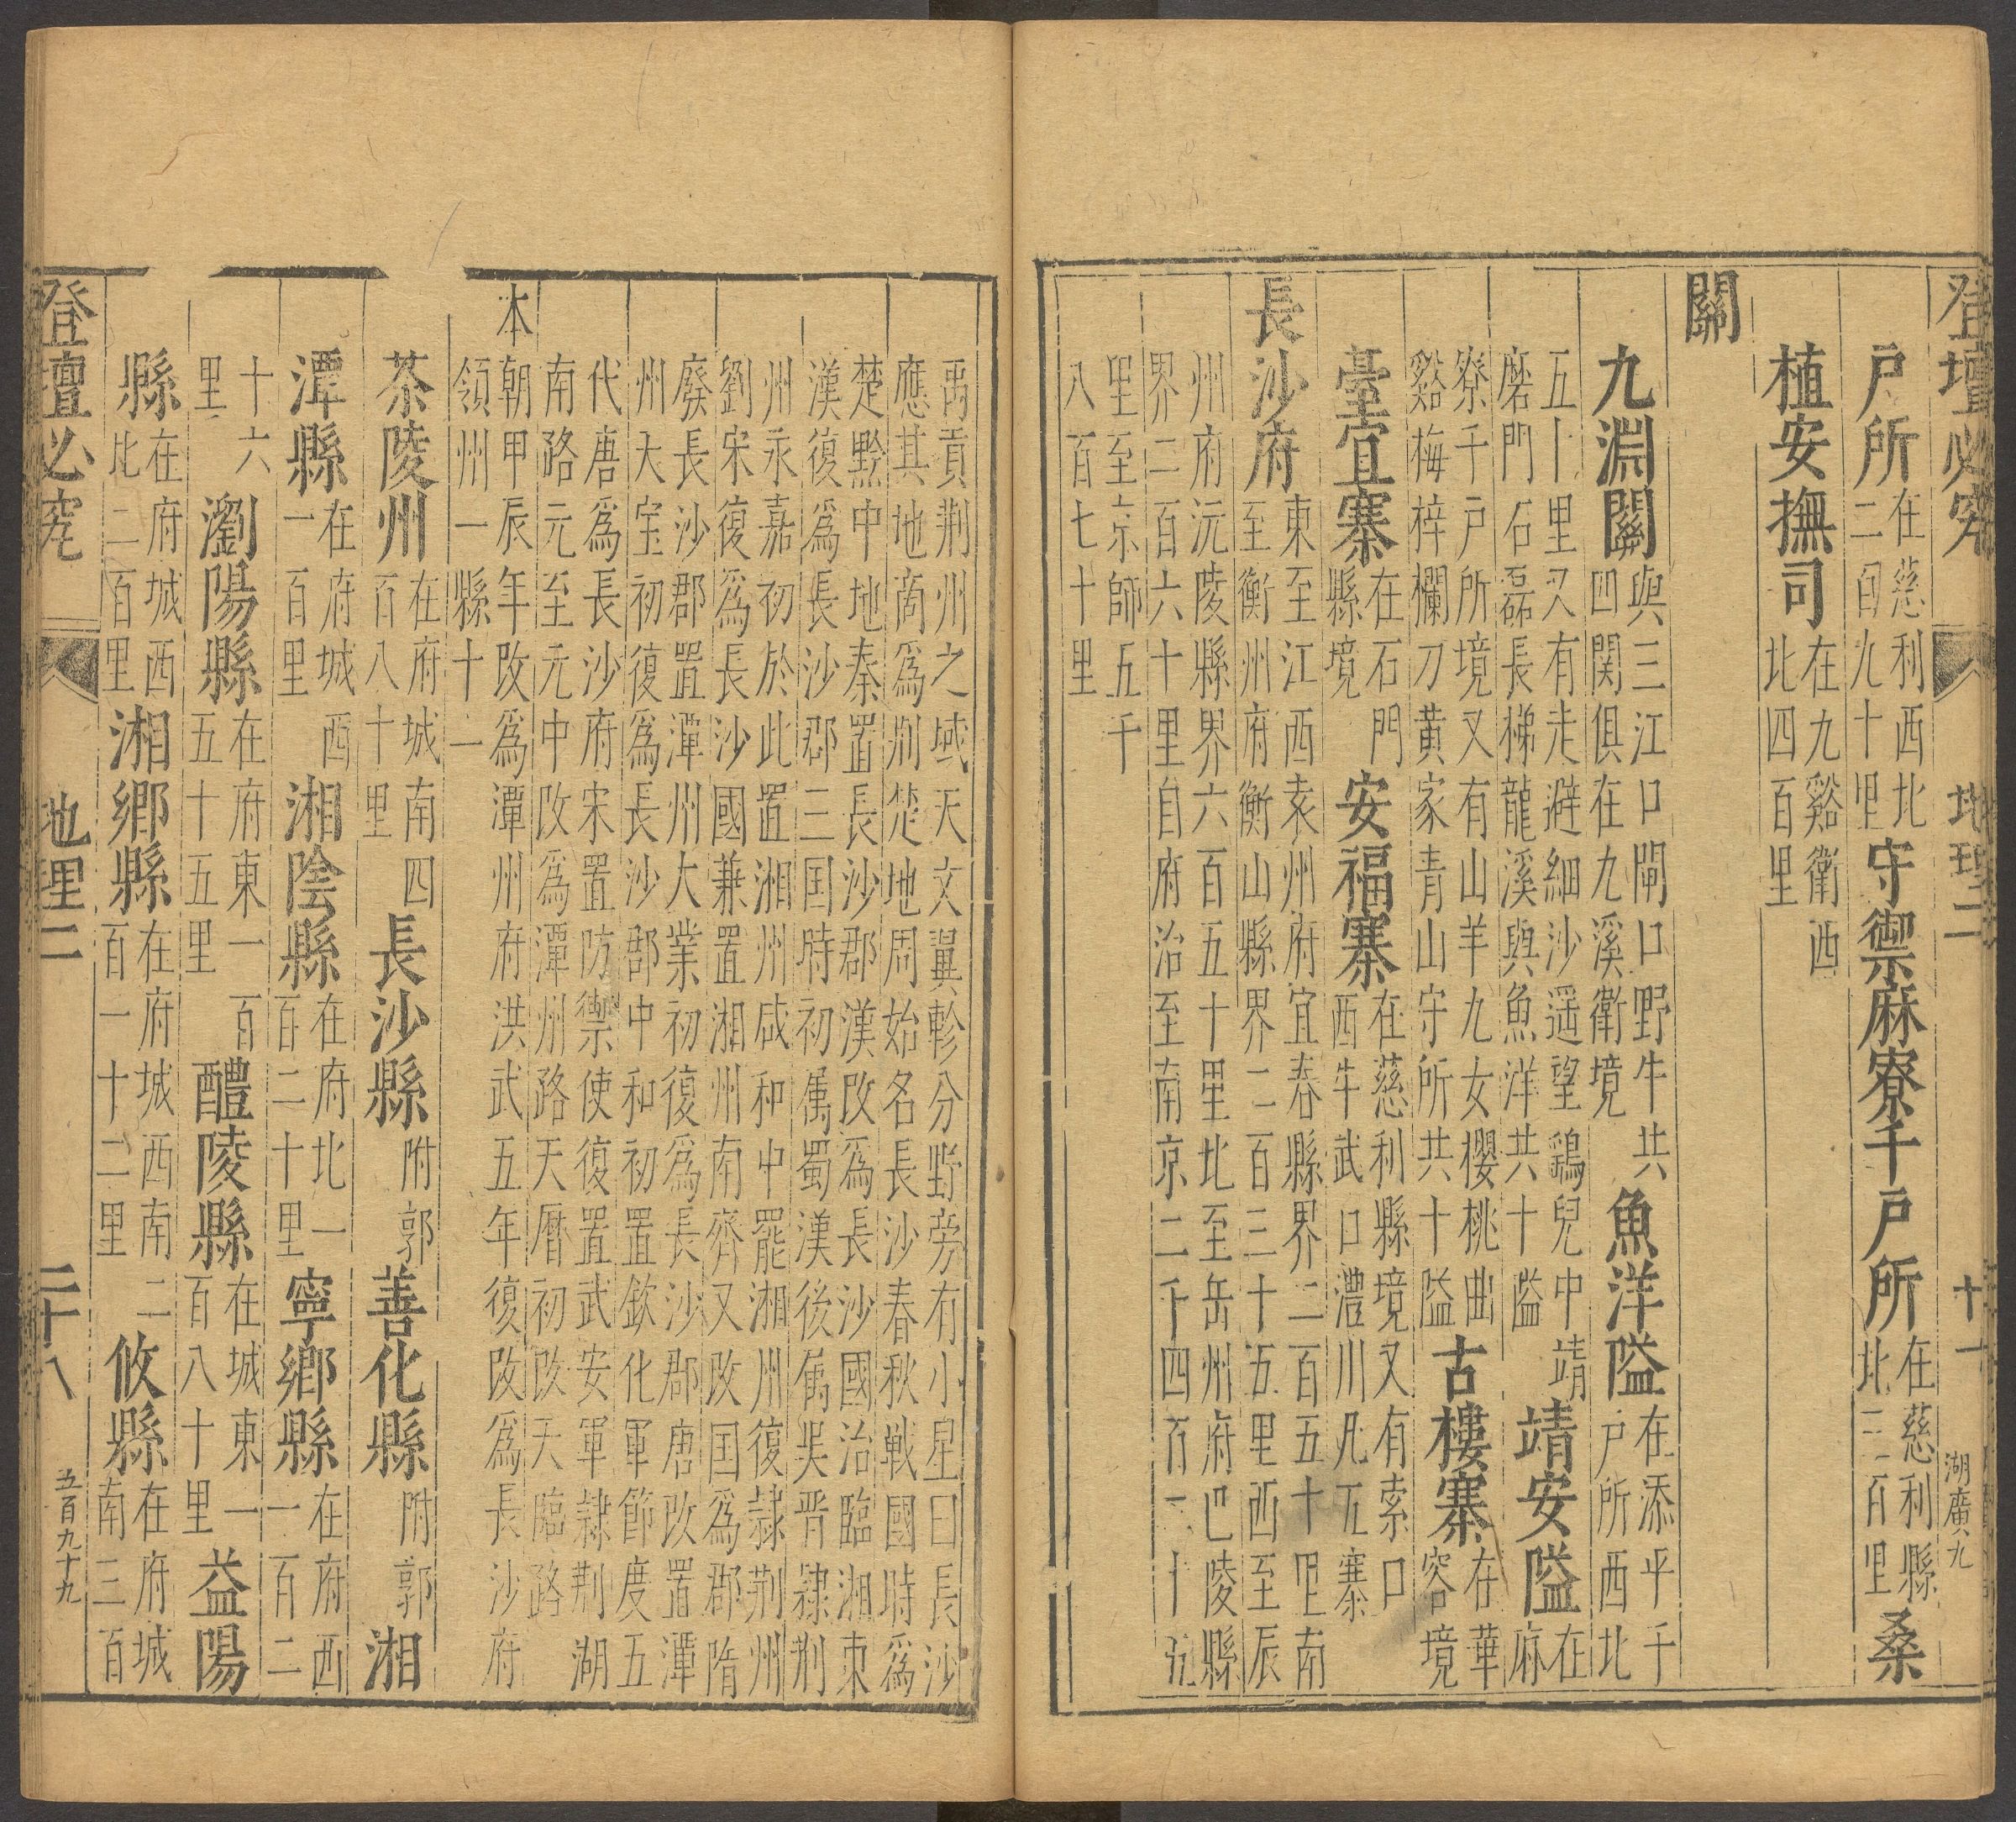 登壇必究 地理二 十一 湖廣九
戶所在慈利西北二百九十里守禦麻寮千戶所在慈利縣北三百里桑
植安撫司在九谿衛西北四百里
關
九淵關與三江口閘口野牛共四関俱在九溪衛境魚洋隘在添平千戶所西北
五十里又有走避細沙遥望鷄兒中靖磨門石磊長梯龍溪與魚洋共十隘靖安隘在麻
寮千戶所境又有山羊九女櫻桃曲谿梅梓欄刀黄家青山守所共十隘古樓寨在華容境
臺宜寨在石門縣境安福寨在慈利縣境又有索口西牛武口澧川九瓦寨
長沙府東至江西袁州府宜春縣界二百五十里南至衡州府衡山縣界二百三十五里西至辰
州府沅陵縣界六百五十里北至岳州府巴陵縣界二百六十里自府治至南京二千四百二十五
里至京師五千八百七十里
禹貢荆州之域天文翼軫分野旁有小星曰長沙
應其地商爲荆楚地周始名長沙春秋戦國時爲
楚黔中地秦置長沙郡漢改爲長沙國治臨湘東
漢復爲長沙郡三国時初属蜀漢後属吴晋隸荆
州永嘉初於此置湘州咸和中罷湘州復隷荆州
劉宋復爲長沙國兼置湘州南齊又改国爲郡隋
廢長沙郡置潭州大業初復爲長沙郡唐改置潭
州天宝初復爲長沙郡中和初置欽化軍節度五
代唐爲長沙府宋置防禦使復置武安軍隷荆湖
南路元至元中改爲潭州路天曆初改天臨路
本朝甲辰年改爲潭州府洪武五年復改爲長沙府
領州一縣十一
茶陵州在府城南四百八十里長沙縣附郭善化縣附郭湘
潭縣在府城西一百里湘陰縣在府北一百二十里寧鄉縣在府西一百二
十六里瀏陽縣在府東一百五十五里醴陵縣在城東一百八十里益陽
縣在府城西北二百里湘鄉縣在府城西南二百一十二里攸縣在府城南三百
登壇必究 地理二 二十八 五百九十九